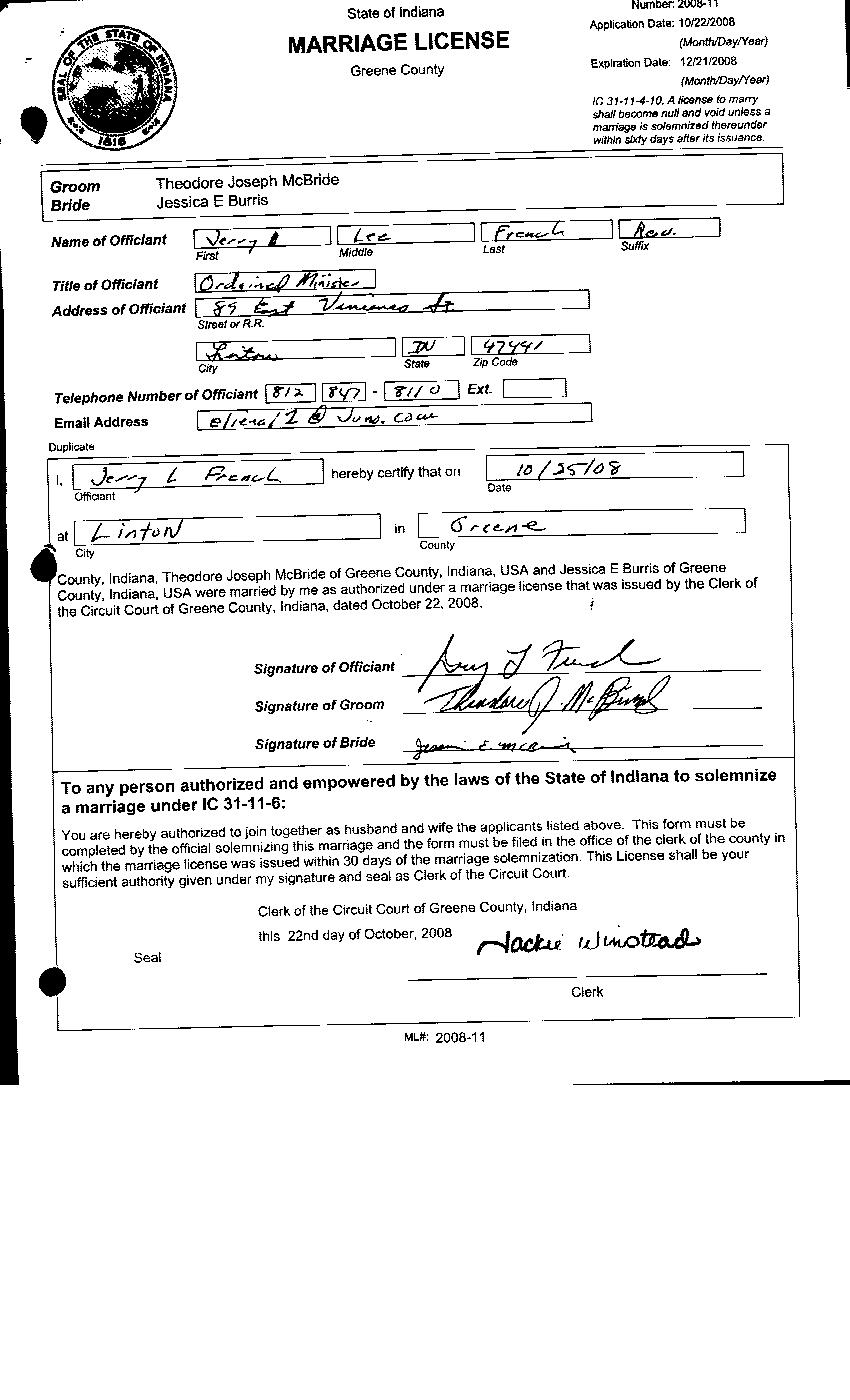 State of Indiana
MARRIAGE LICENSE
Greene County
SEAL OF THE STATE OF INDIANA
1816
Number: 2008-11
Application Date: 10/22/2008
(Month/Day/Year)
Expiration Date: 12/21/2008
(Month/Day/Year)
IC 31-11-4-10. A license to marry
shall become null and void unless a
marriage is solemnized thereunder
within sixty days after its issuance.
Groom Theodore Joseph McBride
Bride Jessica E Burris
Name of Officiant Jerry Lee French Rev.
First Middle Last Suffix
Title of Officiant Ordained Minister
Address of Officiant 89 East Vincennes St
Street or R.R.
Linton IN 47441
City State Zip Code
Telephone Number of Officiant 812 847 - 8110 Ext.
Email Address @ Juno.com
Duplicate
I, Jerry L French hereby certify that on 10/25/08
Officiant Date
at Linton in Greene
City County
County, Indiana, Theodore Joseph McBride of Greene County, Indiana, USA and Jessica E Burris of Greene
County, Indiana, USA were married by me as authorized under a marriage license that was issued by the Clerk of
the Circuit Court of Greene County, Indiana, dated October 22, 2008.
Signature of Officiant Jerry L French
Signature of Groom Theodore J. McBride
Signature of Bride Jessica E. McBride
To any person authorized and empowered by the laws of the State of Indiana to solemnize
a marriage under IC 31-11-6:
You are hereby authorized to join together as husband and wife the applicants listed above. This form must be
completed by the official solemnizing this marriage and the form must be filed in the office of the clerk of the county in
which the marriage license was issued within 30 days of the marriage solemnization. This License shall be your
sufficient authority given under my signature and seal as Clerk of the Circuit Court.
Clerk of the Circuit Court of Greene County, Indiana
this 22nd day of October, 2008 Jackie Winstead
Seal
Clerk
ML#: 2008-11